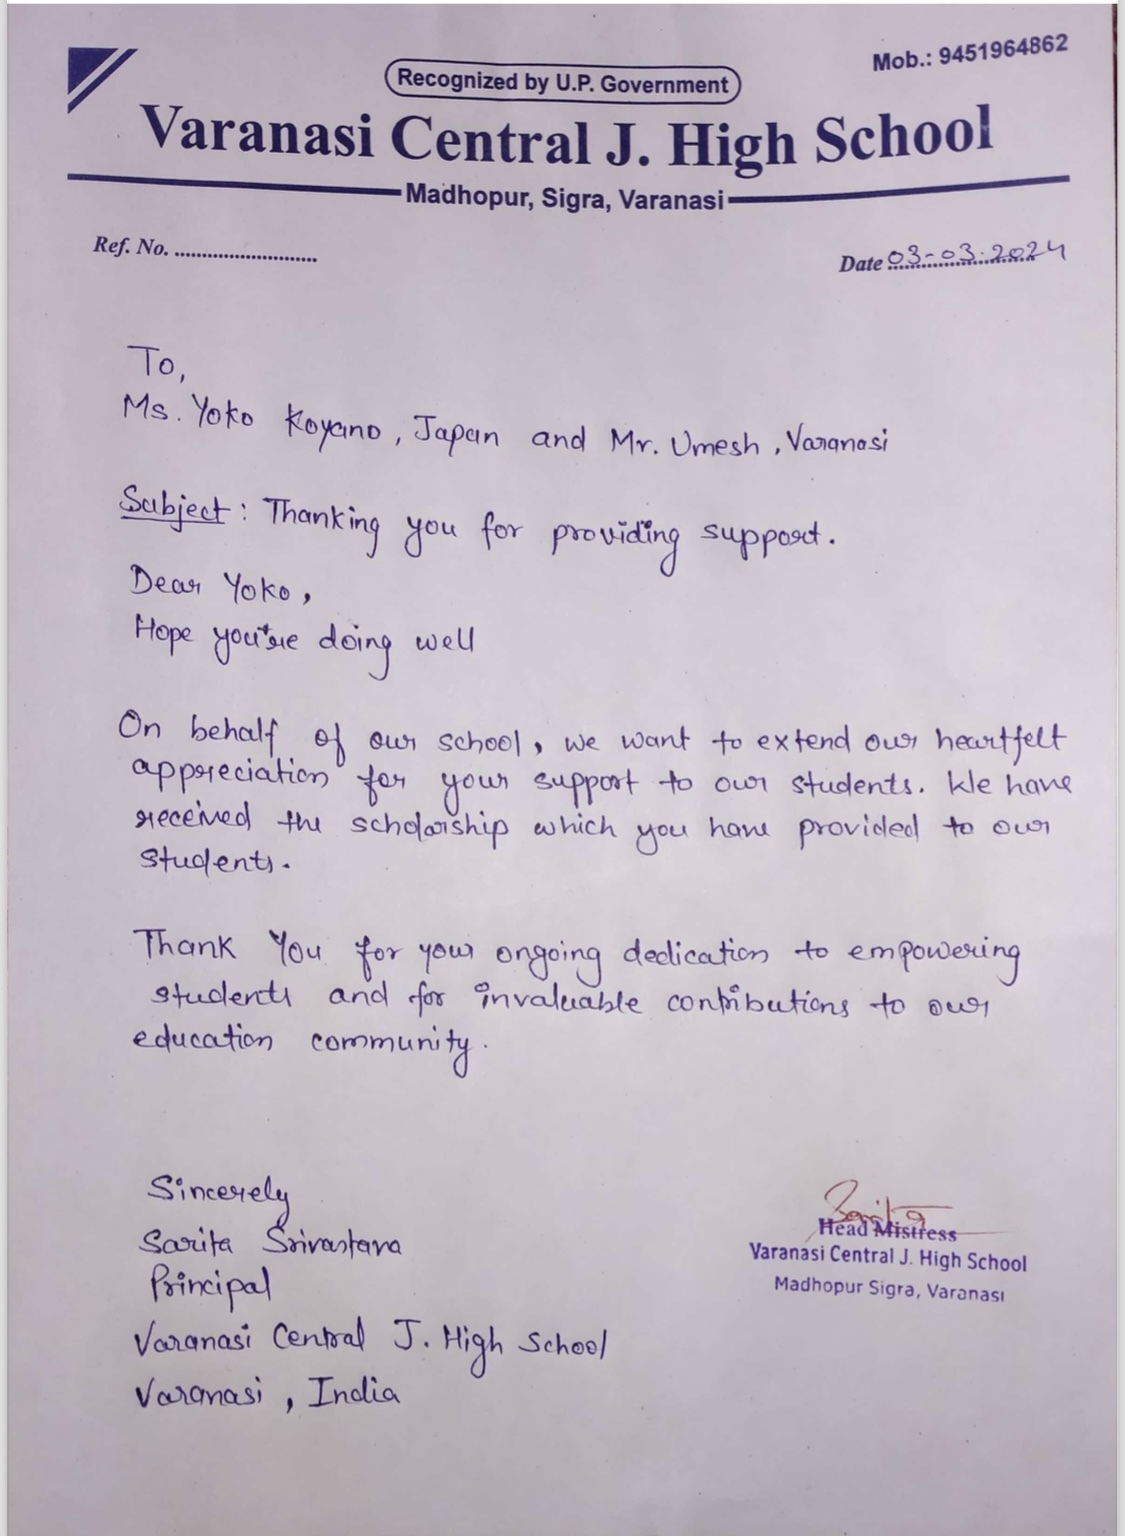 Mob.: 9451964862
Recognized by U.P. Government
Varanasi Central J. High School
Madhopur, Sigra, Varanasi
Ref. No. ..........................
Date 03-03-2024
To,
Ms. Yoko Koyano, Japan and Mr. Umesh, Varanasi
Subject: Thanking you for providing support.
Dear Yoko,
Hope you're doing well
On behalf of our school, we want to extend our heartfelt
appreciation for your support to our students. We have
received the scholarship which you have provided to our
students.
Thank You for your ongoing dedication to empowering
students and for invaluable contributions to our
education community.
Sincerely
Sarita Srivastava
Principal
Varanasi Central J. High School
Varanasi, India
Sarita
Head Mistress
Varanasi Central J. High School
Madhopur Sigra, Varanasi